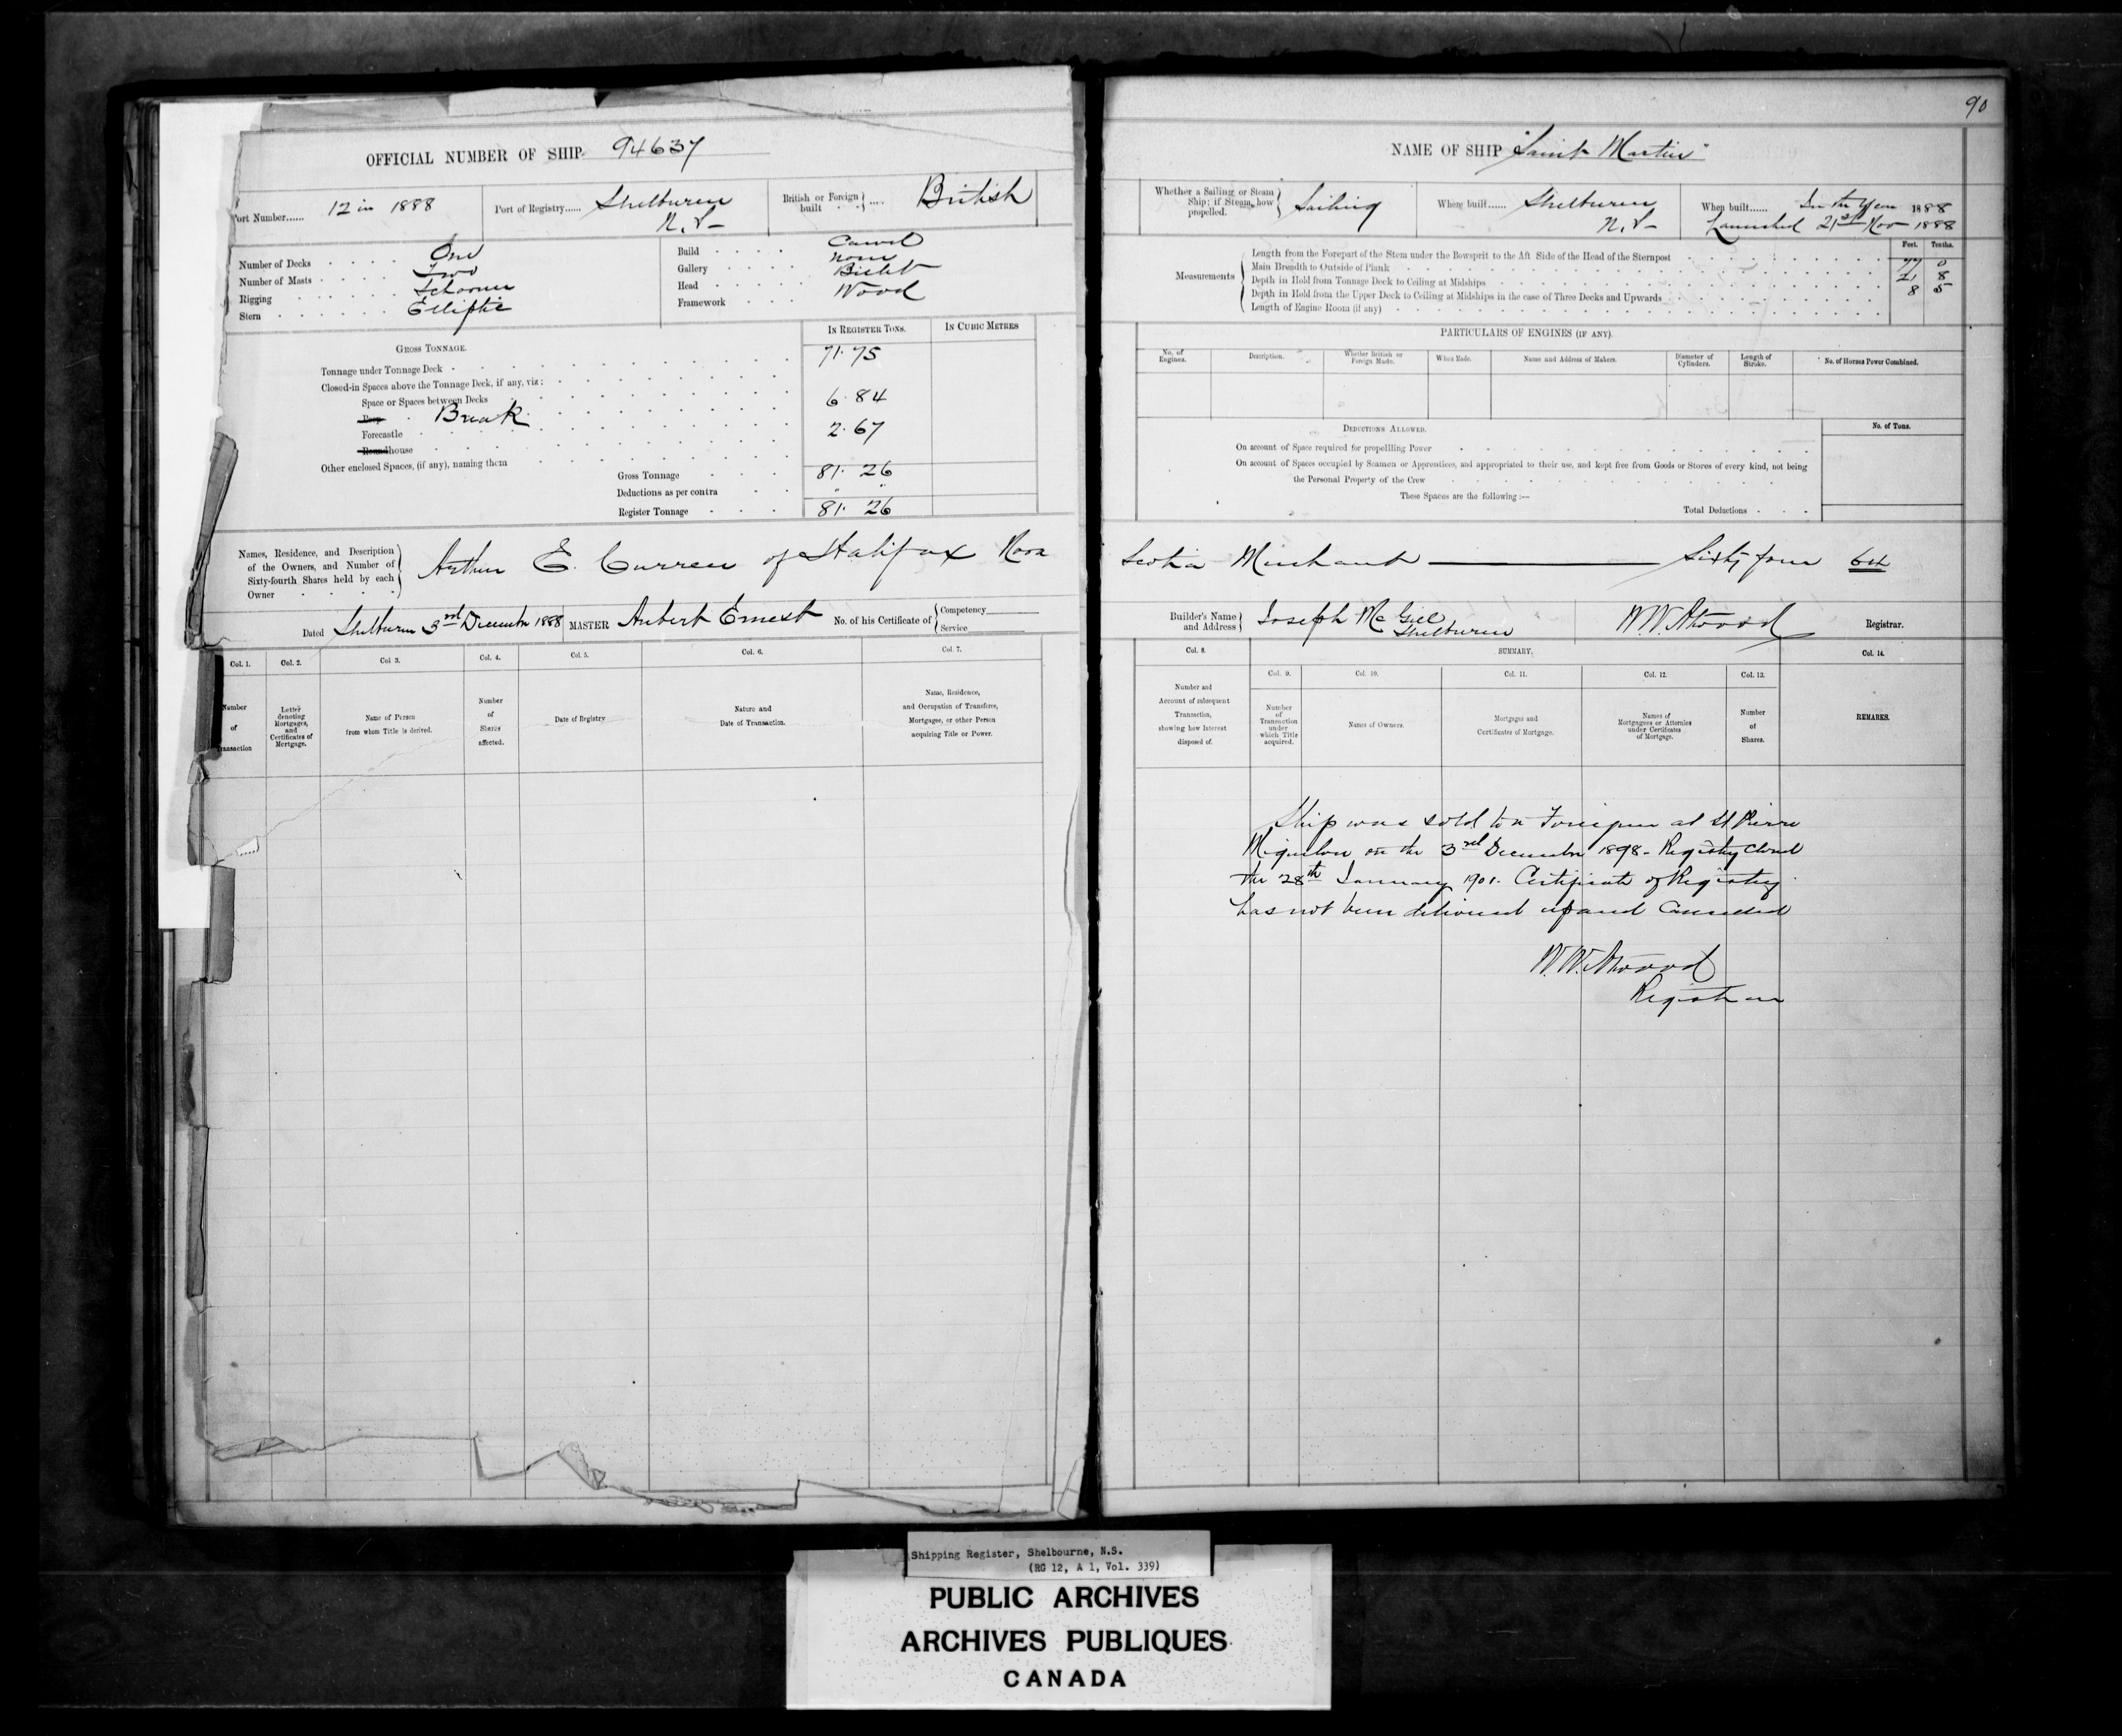 90
OFFICIAL NUMBER OF SHIP 94637
Port Number...... 12 in 1888
Port of Registry...... Shelburne N.S-
British or Foreign built .... British
Number of Decks One
Number of Masts Two
Rigging Schooner
Stern Elliptic
Build Carvel
Gallery none
Head Billet
Framework Wood
IN REGISTER TONS. IN CUBIC METRES
GROSS TONNAGE.
Tonnage under Tonnage Deck 71.75
Closed-in Spaces above the Tonnage Deck, if any, viz:
Space or Spaces between Decks
Poop Break 6.84
Forecastle 2.67
Roundhouse
Other enclosed Spaces, (if any), naming them
Gross Tonnage 81. 26
Deductions as per contra " "
Register Tonnage 81. 26
Names, Residence, and Description
of the Owners, and Number of
Sixty-fourth Shares held by each
Owner
Arthur E. Curren of Halifax Nova
Dated Shelburne 3rd December 1888 MASTER Aubert Ernest No. of his Certificate of Competency
Service
Col. 1. Col. 2. Col. 3. Col. 4. Col. 5. Col. 6. Col. 7.
Number of Transaction
Letter denoting Mortgages, and Certificates of Mortgage.
Name of Person from whom Title is derived.
Number of Shares affected.
Date of Registry
Nature and Date of Transaction.
Name, Residence, and Occupation of Transferee, Mortgagee, or other Person acquiring Title or Power.
NAME OF SHIP "Saint Martin"
Whether a Sailing or Steam Ship; if Steam, how propelled. Sailing
Where built...... Shelburne N.S-
When built...... In the Year 1888
Launched 21st Nov 1888
Feet. Tenths.
Measurements
Length from the Forepart of the Stem under the Bowsprit to the Aft Side of the Head of the Sternpost 77 0
Main Breadth to Outside of Plank 21 8
Depth in Hold from Tonnage Deck to Ceiling at Midships 8 5
Depth in Hold from the Upper Deck to Ceiling at Midships in the case of Three Decks and Upwards
Length of Engine Room (if any)
PARTICULARS OF ENGINES (IF ANY).
No. of Engines. Description. Whether British or Foreign Made. When Made. Name and Address of Makers. Diameter of Cylinders. Length of Stroke. No. of Horses Power Combined.
DEDUCTIONS ALLOWED. No. of Tons.
On account of Space required for propellling Power
On account of Spaces occupied by Seamen or Apprentices, and appropriated to their use, and kept free from Goods or Stores of every kind, not being
the Personal Property of the Crew
These Spaces are the following:—
Total Deductions
Scotia Merchant ——— Sixty four 64
Builder's Name and Address Joseph McGill Shelburne
W.W. Atwood Registrar.
Col. 8. SUMMARY. Col. 14.
Col. 9. Col. 10. Col. 11. Col. 12. Col. 13.
Number and Account of subsequent Transaction, showing how Interest disposed of.
Number of Transaction under which Title acquired.
Names of Owners.
Mortgages and Certificates of Mortgage.
Names of Mortgagees or Attornies under Certificates of Mortgage.
Number of Shares.
REMARKS.
Ship was sold to a Foreigner at St Pierre
Miquelon on the 3rd December 1898 - Registry Closed
the 28th January 1901. Certificate of Registry
has not been delivered up and Cancelled
W.W. Atwood
Registrar
Shipping Register, Shelbourne, N.S.
(RG 12, A 1, Vol. 339)
PUBLIC ARCHIVES
ARCHIVES PUBLIQUES
CANADA